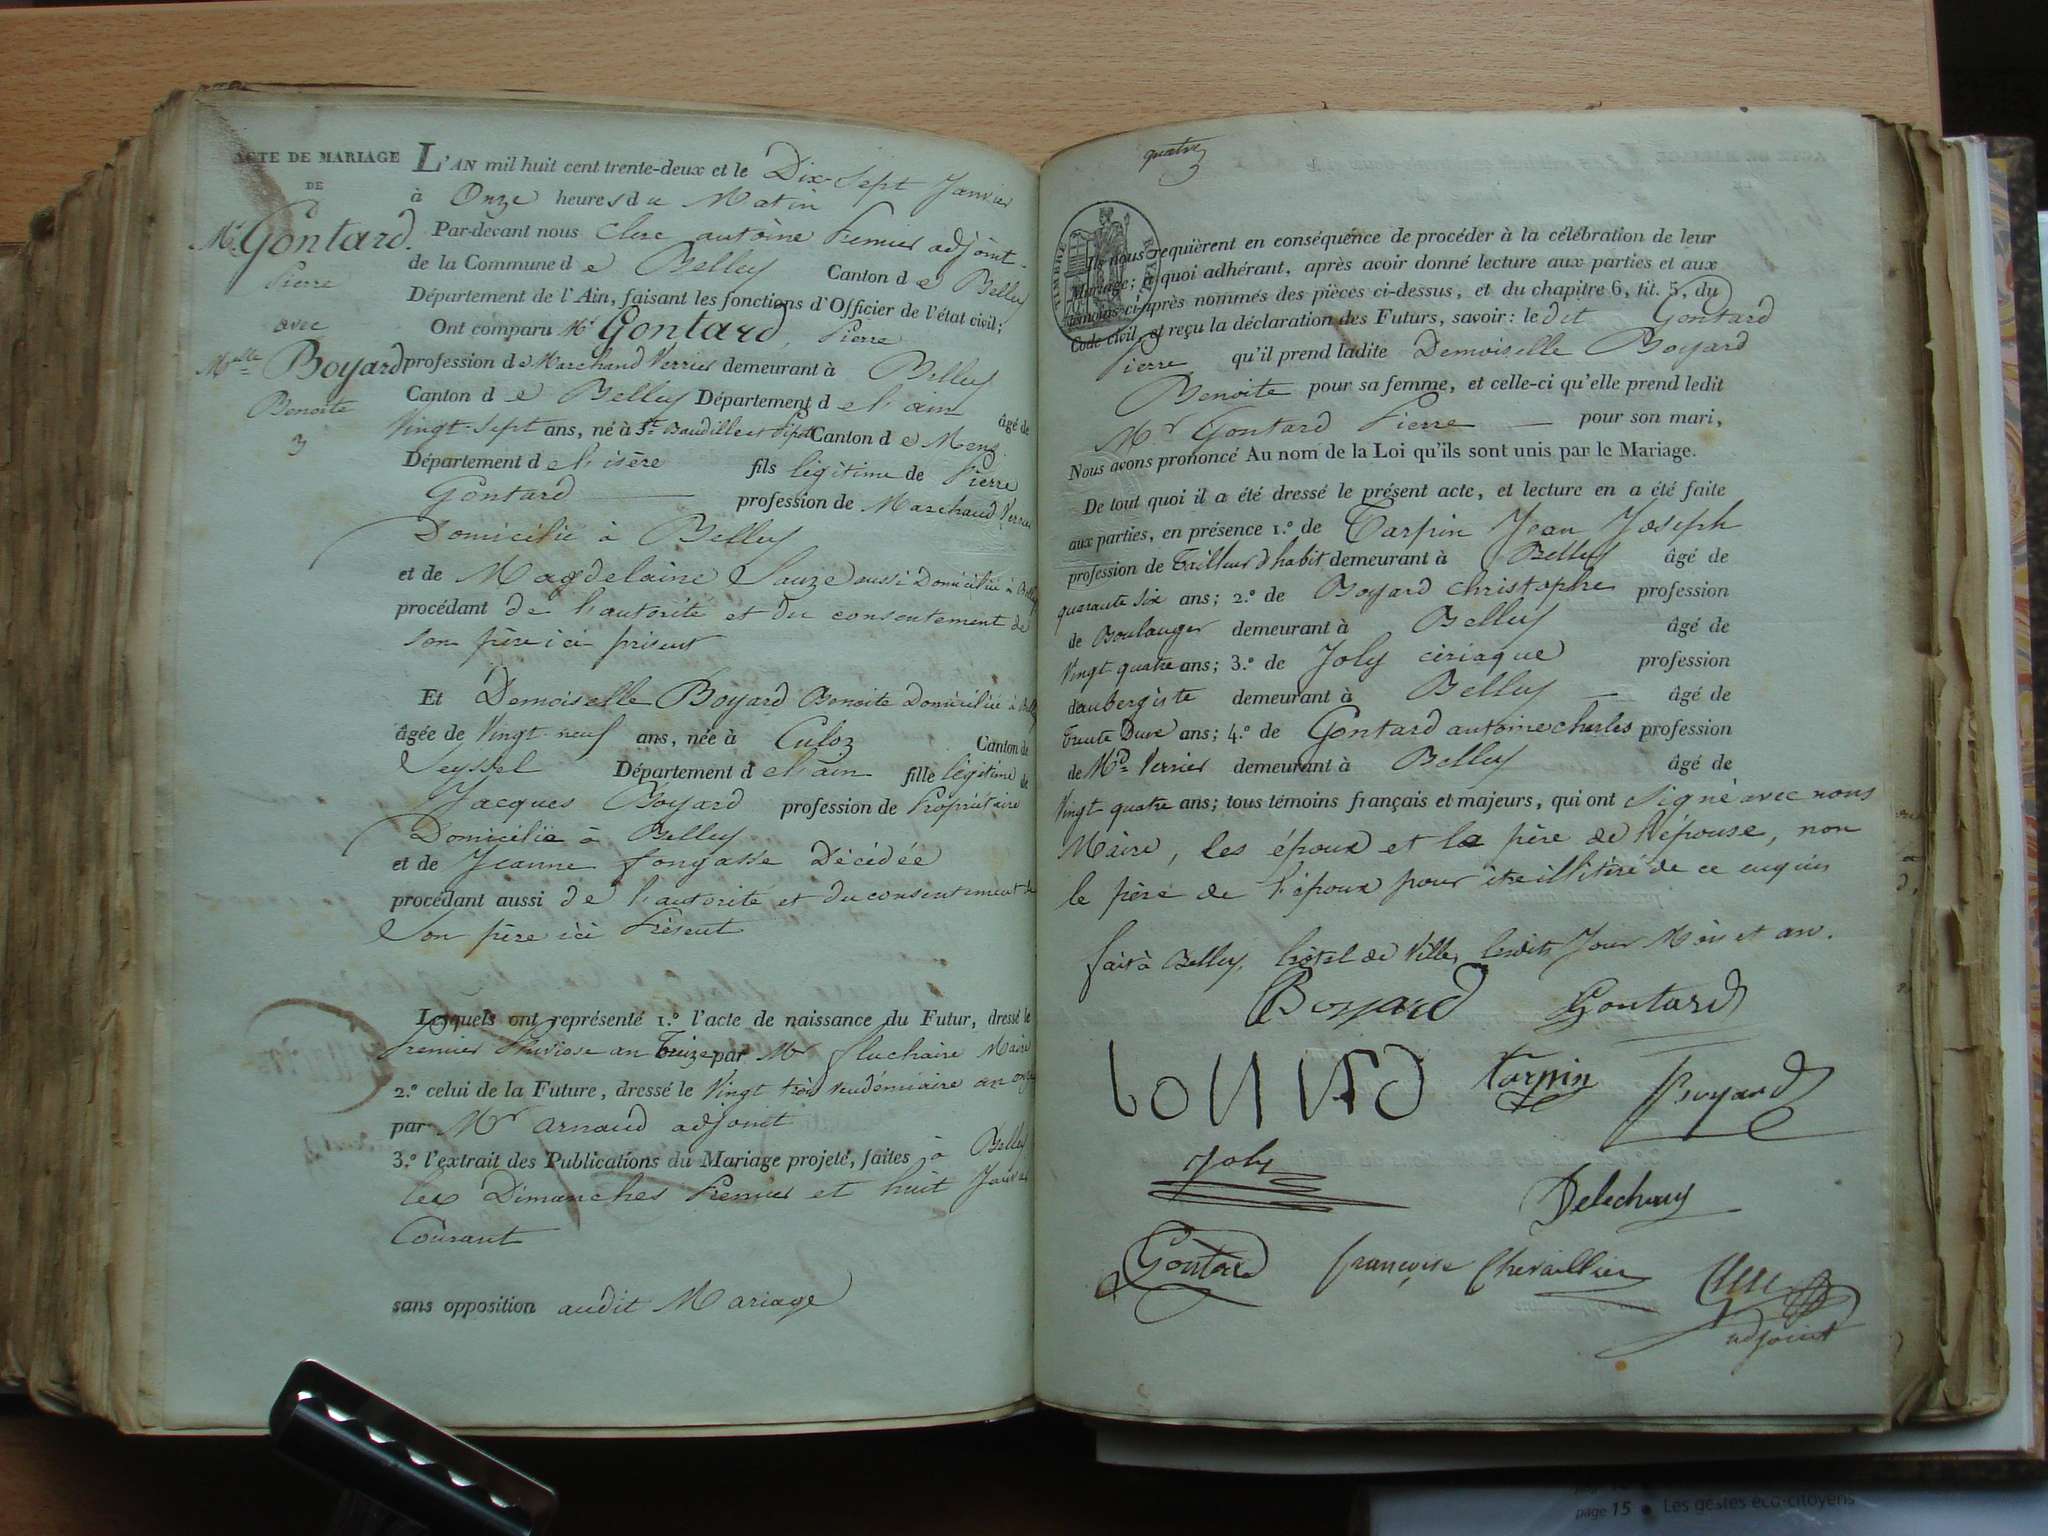 ACTE DE MARIAGE
DE
Mr Gontard.
Pierre
avec
Melle Boyard
Benoite
3
L'AN mil huit cent trente-deux et le Dix Sept Janvier
à Onze heures du Matin
Par-devant nous Clerc antoine Premier adjoint
de la Commune de Belley Canton de Belley
Département de l'Ain, faisant les fonctions d'Officier de l'état civil;
Ont comparu Mr Gontard, Pierre
profession de Marchand Verrier demeurant à Belley
Canton de Belley Département de l'ain âgé de
Vingt-sept ans, né à St Baudille et Pipet Canton de Mens
Département de l'isère fils légitime de Pierre
Gontard profession de Marchand Verrier
Domicilié à Belley
et de Magdelaine Sauze aussi Domiciliée à Belley
procédant de l'autorité et du consentement de
son père ici présent
Et Demoiselle Boyard Benoite Domiciliée à Belley
âgée de Vingt-neuf ans, née à Culoz Canton de
Seyssel Département de l'ain fille légitime de
Jacques Boyard profession de Propriétaire
Domicilié à Belley
et de Jeanne fongasse Décédée
procédant aussi de l'autorité et du consentement de
Son père ici Présent
Lesquels ont représenté 1.º l'acte de naissance du Futur, dressé le
Premier Pluviose an treize par Mr fluchaire Maire
2.º celui de la Future, dressé le Vingt trois vendémiaire an onze
par Mr Arnaud adjoint
3.º l'extrait des Publications du Mariage projeté, faites à Belley
les Dimanches Premier et huit Janvier
Courant
sans opposition audit Mariage
quatre
TIMBRE
Ils nous requièrent en conséquence de procéder à la célébration de leur
Mariage; à quoi adhérant, après avoir donné lecture aux parties et aux
témoins ci-après nommés des pièces ci-dessus, et du chapitre 6, tit. 5, du
Code civil, et reçu la déclaration des Futurs, savoir: le dit Gontard
Pierre qu'il prend ladite Demoiselle Boyard
Benoite pour sa femme, et celle-ci qu'elle prend ledit
Mr Gontard Pierre — pour son mari,
Nous avons prononcé Au nom de la Loi qu'ils sont unis par le Mariage.
De tout quoi il a été dressé le présent acte, et lecture en a été faite
aux parties, en présence 1.º de Tarpin Jean Joseph
profession de tailleur d'habit demeurant à Belley âgé de
quarante six ans; 2.º de Boyard christophe profession
de Boulanger demeurant à Belley âgé de
Vingt quatre ans; 3.º de Joly ciriaque profession
d'aubergiste demeurant à Belley — âgé de
trente Deux ans; 4.º de Gontard antoine charles profession
de Md Verrier demeurant à Belley âgé de
Vingt quatre ans; tous témoins français et majeurs, qui ont signé avec nous
Maire, les époux et le père de l'épouse, non
le père de l'époux pour être illitéré de ce enquis
fait à Belley, hôtel de Ville, lesdits Jour Mois et an.
Boyard Gontard
Tarpin Boyard
Joly
Gontard françoise Chevaillier Clerc
adjoint
page 15 • Les gestes éco-citoyens